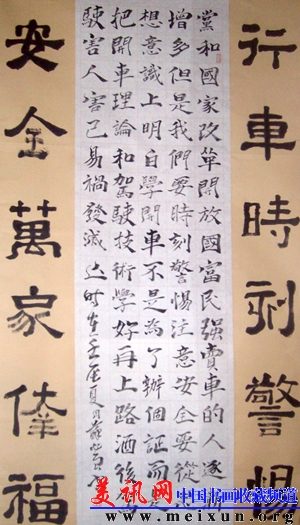 行車時刻警惕
黨和國家改革開放國富民强賣車的人逐
增多但是我們要時刻警惕注意安全要從
想意識上明白學開車不是為了辦個証而是
把開車理論和駕駛技術學好再上路酒後
駛害人害己易禍發
安全萬家倖福
美讯网 中国书画收藏频道
www.meixun.org